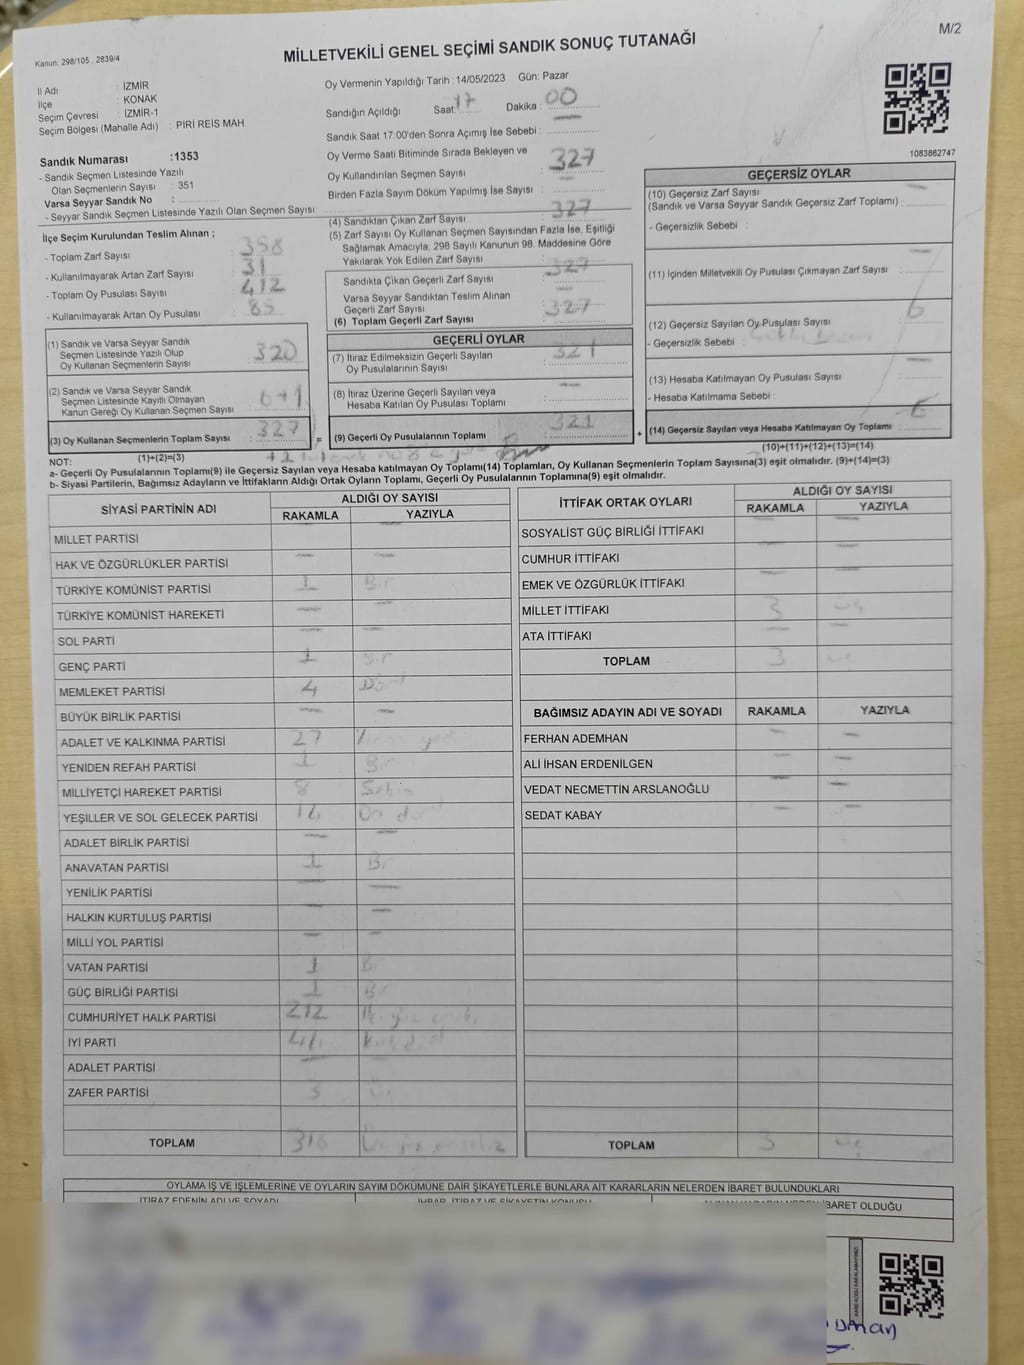 M/2
MİLLETVEKİLİ GENEL SEÇİMİ SANDIK SONUÇ TUTANAĞI
Kanun: 298/105 , 2839/4
İl Adı : İZMİR
İlçe : KONAK
Seçim Çevresi : İZMİR-1
Seçim Bölgesi (Mahalle Adı) : PİRİ REİS MAH.
Sandık Numarası :1353
- Sandık Seçmen Listesinde Yazılı
Olan Seçmenlerin Sayısı : 351
Varsa Seyyar Sandık No :
- Seyyar Sandık Seçmen Listesinde Yazılı Olan Seçmen Sayısı :
İlçe Seçim Kurulundan Teslim Alınan ;
- Toplam Zarf Sayısı : 358
- Kullanılmayarak Artan Zarf Sayısı : 31
- Toplam Oy Pusulası Sayısı : 412
- Kullanılmayarak Artan Oy Pusulası : 85
(1) Sandık ve Varsa Seyyar Sandık
Seçmen Listesinde Yazılı Olup
Oy Kullanan Seçmenlerin Sayısı : 320
(2) Sandık ve Varsa Seyyar Sandık
Seçmen Listesinde Kayıtlı Olmayan
Kanun Gereği Oy Kullanan Seçmen Sayısı : 6+1
(3) Oy Kullanan Seçmenlerin Toplam Sayısı : 327
(1)+(2)=(3)
Oy Vermenin Yapıldığı Tarih :14/05/2023 Gün: Pazar
Sandığın Açıldığı Saat : 17 Dakika : 00
Sandık Saat 17:00'den Sonra Açımış İse Sebebi : —
Oy Verme Saati Bitiminde Sırada Bekleyen ve
Oy Kullandırılan Seçmen Sayısı : 327
Birden Fazla Sayım Döküm Yapılmış İse Sayısı : —
(4) Sandıktan Çıkan Zarf Sayısı : 327
(5) Zarf Sayısı Oy Kullanan Seçmen Sayısından Fazla İse, Eşitliği
Sağlamak Amacıyla, 298 Sayılı Kanunun 98. Maddesine Göre
Yakılarak Yok Edilen Zarf Sayısı :
Sandıkta Çıkan Geçerli Zarf Sayısı : 327
Varsa Seyyar Sandıktan Teslim Alınan
Geçerli Zarf Sayısı : —
(6) Toplam Geçerli Zarf Sayısı : 327
GEÇERLİ OYLAR
(7) İtiraz Edilmeksizin Geçerli Sayılan
Oy Pusulalarının Sayısı : 321
(8) İtiraz Üzerine Geçerli Sayılan veya
Hesaba Katılan Oy Pusulası Toplamı : —
= (9) Geçerli Oy Pusulalarının Toplamı : 321 +
1083862747
GEÇERSİZ OYLAR
(10) Geçersiz Zarf Sayısı
(Sandık ve Varsa Seyyar Sandık Geçersiz Zarf Toplamı) : —
- Geçersizlik Sebebi :
(11) İçinden Milletvekili Oy Pusulası Çıkmayan Zarf Sayısı : —
(12) Geçersiz Sayılan Oy Pusulası Sayısı : 6
- Geçersizlik Sebebi :
(13) Hesaba Katılmayan Oy Pusulası Sayısı : —
- Hesaba Katılmama Sebebi :
(14) Geçersiz Sayılan veya Hesaba Katılmayan Oy Toplamı : 6
(10)+(11)+(12)+(13)=(14)
NOT:
a- Geçerli Oy Pusulalarının Toplamı(9) ile Geçersiz Sayılan veya Hesaba katılmayan Oy Toplamı(14) Toplamları, Oy Kullanan Seçmenlerin Toplam Sayısına(3) eşit olmalıdır. (9)+(14)=(3)
b- Siyasi Partilerin, Bağımsız Adayların ve İttifakların Aldığı Ortak Oyların Toplamı, Geçerli Oy Pusulalarının Toplamına(9) eşit olmalıdır.
SİYASİ PARTİNİN ADI ALDIĞI OY SAYISI
RAKAMLA YAZIYLA
MİLLET PARTİSİ — —
HAK VE ÖZGÜRLÜKLER PARTİSİ — —
TÜRKİYE KOMÜNİST PARTİSİ 1 Bir
TÜRKİYE KOMÜNİST HAREKETİ — —
SOL PARTİ — —
GENÇ PARTİ 1 Bir
MEMLEKET PARTİSİ 4 Dört
BÜYÜK BİRLİK PARTİSİ — —
ADALET VE KALKINMA PARTİSİ 27 Yirmi yedi
YENİDEN REFAH PARTİSİ 1 Bir
MİLLİYETÇİ HAREKET PARTİSİ 8 Sekiz
YEŞİLLER VE SOL GELECEK PARTİSİ 14 On dört
ADALET BİRLİK PARTİSİ — —
ANAVATAN PARTİSİ 1 Bir
YENİLİK PARTİSİ — —
HALKIN KURTULUŞ PARTİSİ — —
MİLLİ YOL PARTİSİ — —
VATAN PARTİSİ 1 Bir
GÜÇ BİRLİĞİ PARTİSİ 1 Bir
CUMHURİYET HALK PARTİSİ 212
İYİ PARTİ 44 Kırk dört
ADALET PARTİSİ — —
ZAFER PARTİSİ 3
TOPLAM 318
İTTİFAK ORTAK OYLARI ALDIĞI OY SAYISI
RAKAMLA YAZIYLA
SOSYALİST GÜÇ BİRLİĞİ İTTİFAKI — —
CUMHUR İTTİFAKI — —
EMEK VE ÖZGÜRLÜK İTTİFAKI — —
MİLLET İTTİFAKI 3 üç
ATA İTTİFAKI — —
TOPLAM 3 üç
BAĞIMSIZ ADAYIN ADI VE SOYADI RAKAMLA YAZIYLA
FERHAN ADEMHAN — —
ALİ İHSAN ERDENİLGEN — —
VEDAT NECMETTİN ARSLANOĞLU — —
SEDAT KABAY — —
TOPLAM 3 üç
OYLAMA İŞ VE İŞLEMLERİNE VE OYLARIN SAYIM DÖKÜMÜNE DAİR ŞİKAYETLERLE BUNLARA AİT KARARLARIN NELERDEN İBARET BULUNDUKLARI
İTİRAZ EDENİN ADI VE SOYADI İHBAR, İTİRAZ VE ŞİKAYETİN KONUSU İBARET OLDUĞU